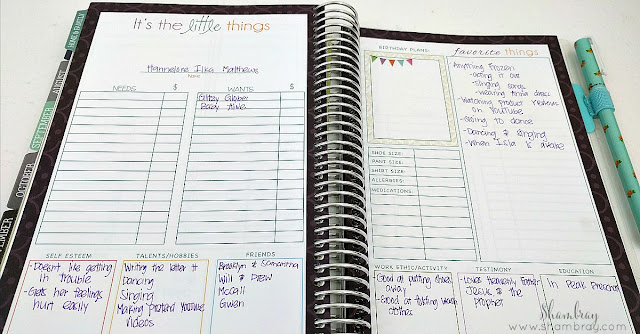 It's the little things
Hannelore Ilka Matthews
Name
NEEDS $ WANTS $
Glitzy Globes
Baby Alive
SELF ESTEEM
- Doesn't like getting
in trouble
- Gets her feelings
hurt easily
TALENTS/HOBBIES
Writing the letter H
Dancing
Singing
Making pretend YouTube
videos
FRIENDS
Brooklyn & Samantha
Will & Drew
McCall
Gwen
HOME & FAMILY
AUGUST
SEPTEMBER
OCTOBER
BIRTHDAY PLANS:
favorite things
Anything Frozen
- acting it out
- singing songs
- wearing Anna dress
Watching product reviews
on YouTube
- Going to dance
- Dancing & singing
- When Isla is awake
SHOE SIZE:
PANT SIZE:
SHIRT SIZE:
ALLERGIES:
MEDICATIONS:
WORK ETHIC/ACTIVITY
- Good at putting
away
- Good at folding wash
clothes
TESTIMONY
- Loves Heavenly Father
Jesus & the
prophet
EDUCATION
- In Peak Preschool
Shambray
www.shambray.com